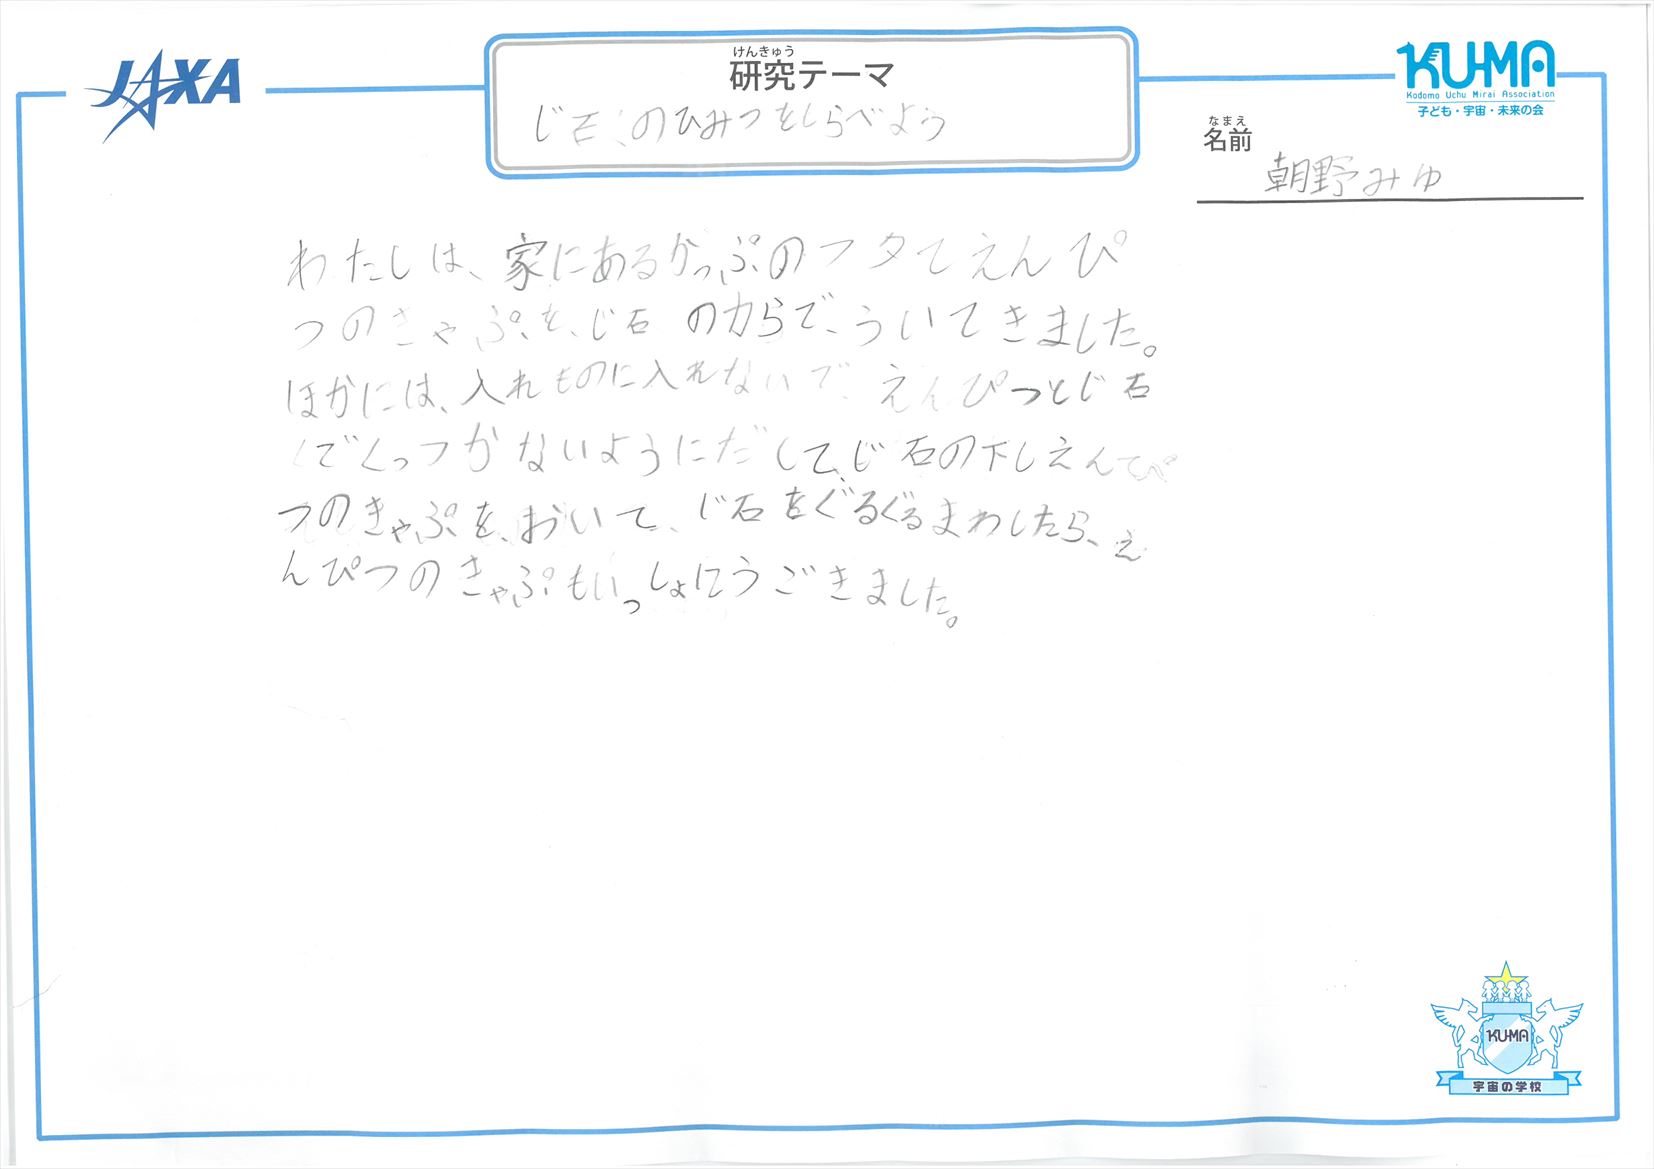 JAXA
けんきゅう
研究テーマ
じ石のひみつをしらべよう
KU-MA
Kodomo Uchu Mirai Association
子ども・宇宙・未来の会
なまえ
名前
朝野みゆ
わたしは、家にあるかっぷのフタてえんぴ
つのきゃぷを、じ石の力らで、ういてきました。
ほかには、入れものに入れないで、えんぴつとじ石
でくっつかないようにだして、じ石の下しえん
つのきゃぷを、おいて、じ石をぐるぐるまわしたら、え
んぴつのきゃぷもいっしょにうごきました。
KU-MA
宇宙の学校